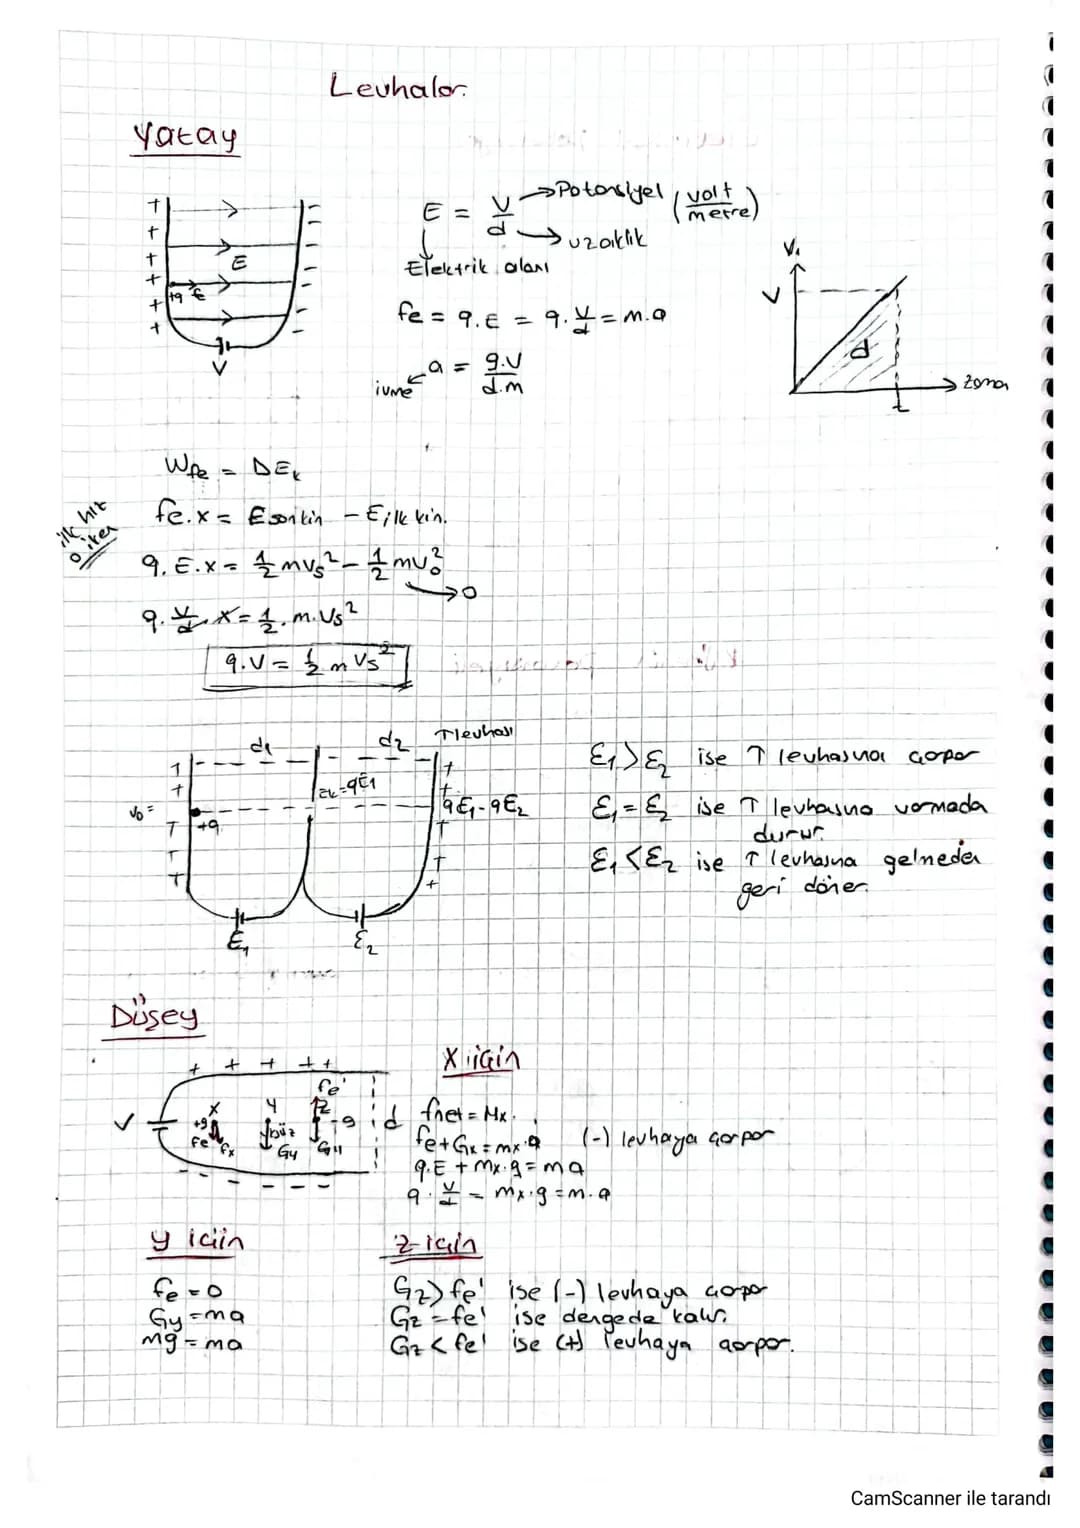 Levhalar.
Yatay
E = V/d → Potansiyel (volt/metre)
→ uzaklık
Elektrik alanı
E
+q E
V
fe = q.E = q.V/d = m.a
a = q.V/d.m
ivme
V
d
t
zaman
Wfe = ΔEk
ilk hız 0 iken
fe.x = Eson kin - Eilk kin.
q.E.x = 1/2 mVs² - 1/2 mV0² → 0
q.V/d.x = 1/2.m.Vs²
q.V = 1/2 m Vs²
d1 d2 T levhası
Ek=qE1
V0 =
+q
qE1-qE2
E1 E2
E1 > E2 ise T levhasına çarpar
E1 = E2 ise T levhasına varmada
durur.
E1 < E2 ise T levhasına gelmeden
geri döner.
Düşey
+ + + + +
V
X Y Z
+q fe fx
yüz Gy
fe' -q
d
- - - -
X için
fnet = Mx.
fe + Gx = mx.a (-) levhaya çarpar
q.E + mx.g = ma
q.V/d - mx.g = m.a
y için
fe = 0
Gy = ma
mg = ma
z için
Gz > fe' ise (-) levhaya çarpar
Gz = fe' ise dengede kalır.
Gz < fe' ise (+) levhaya çarpar.
CamScanner ile tarandı